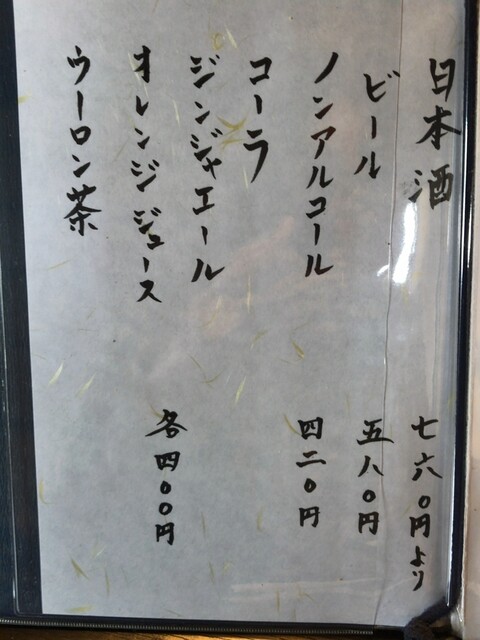 日本酒 七六〇円より
ビール 五八〇円
ノンアルコール 四二〇円
コーラ
ジンジャエール
オレンジジュース 各四〇〇円
ウーロン茶